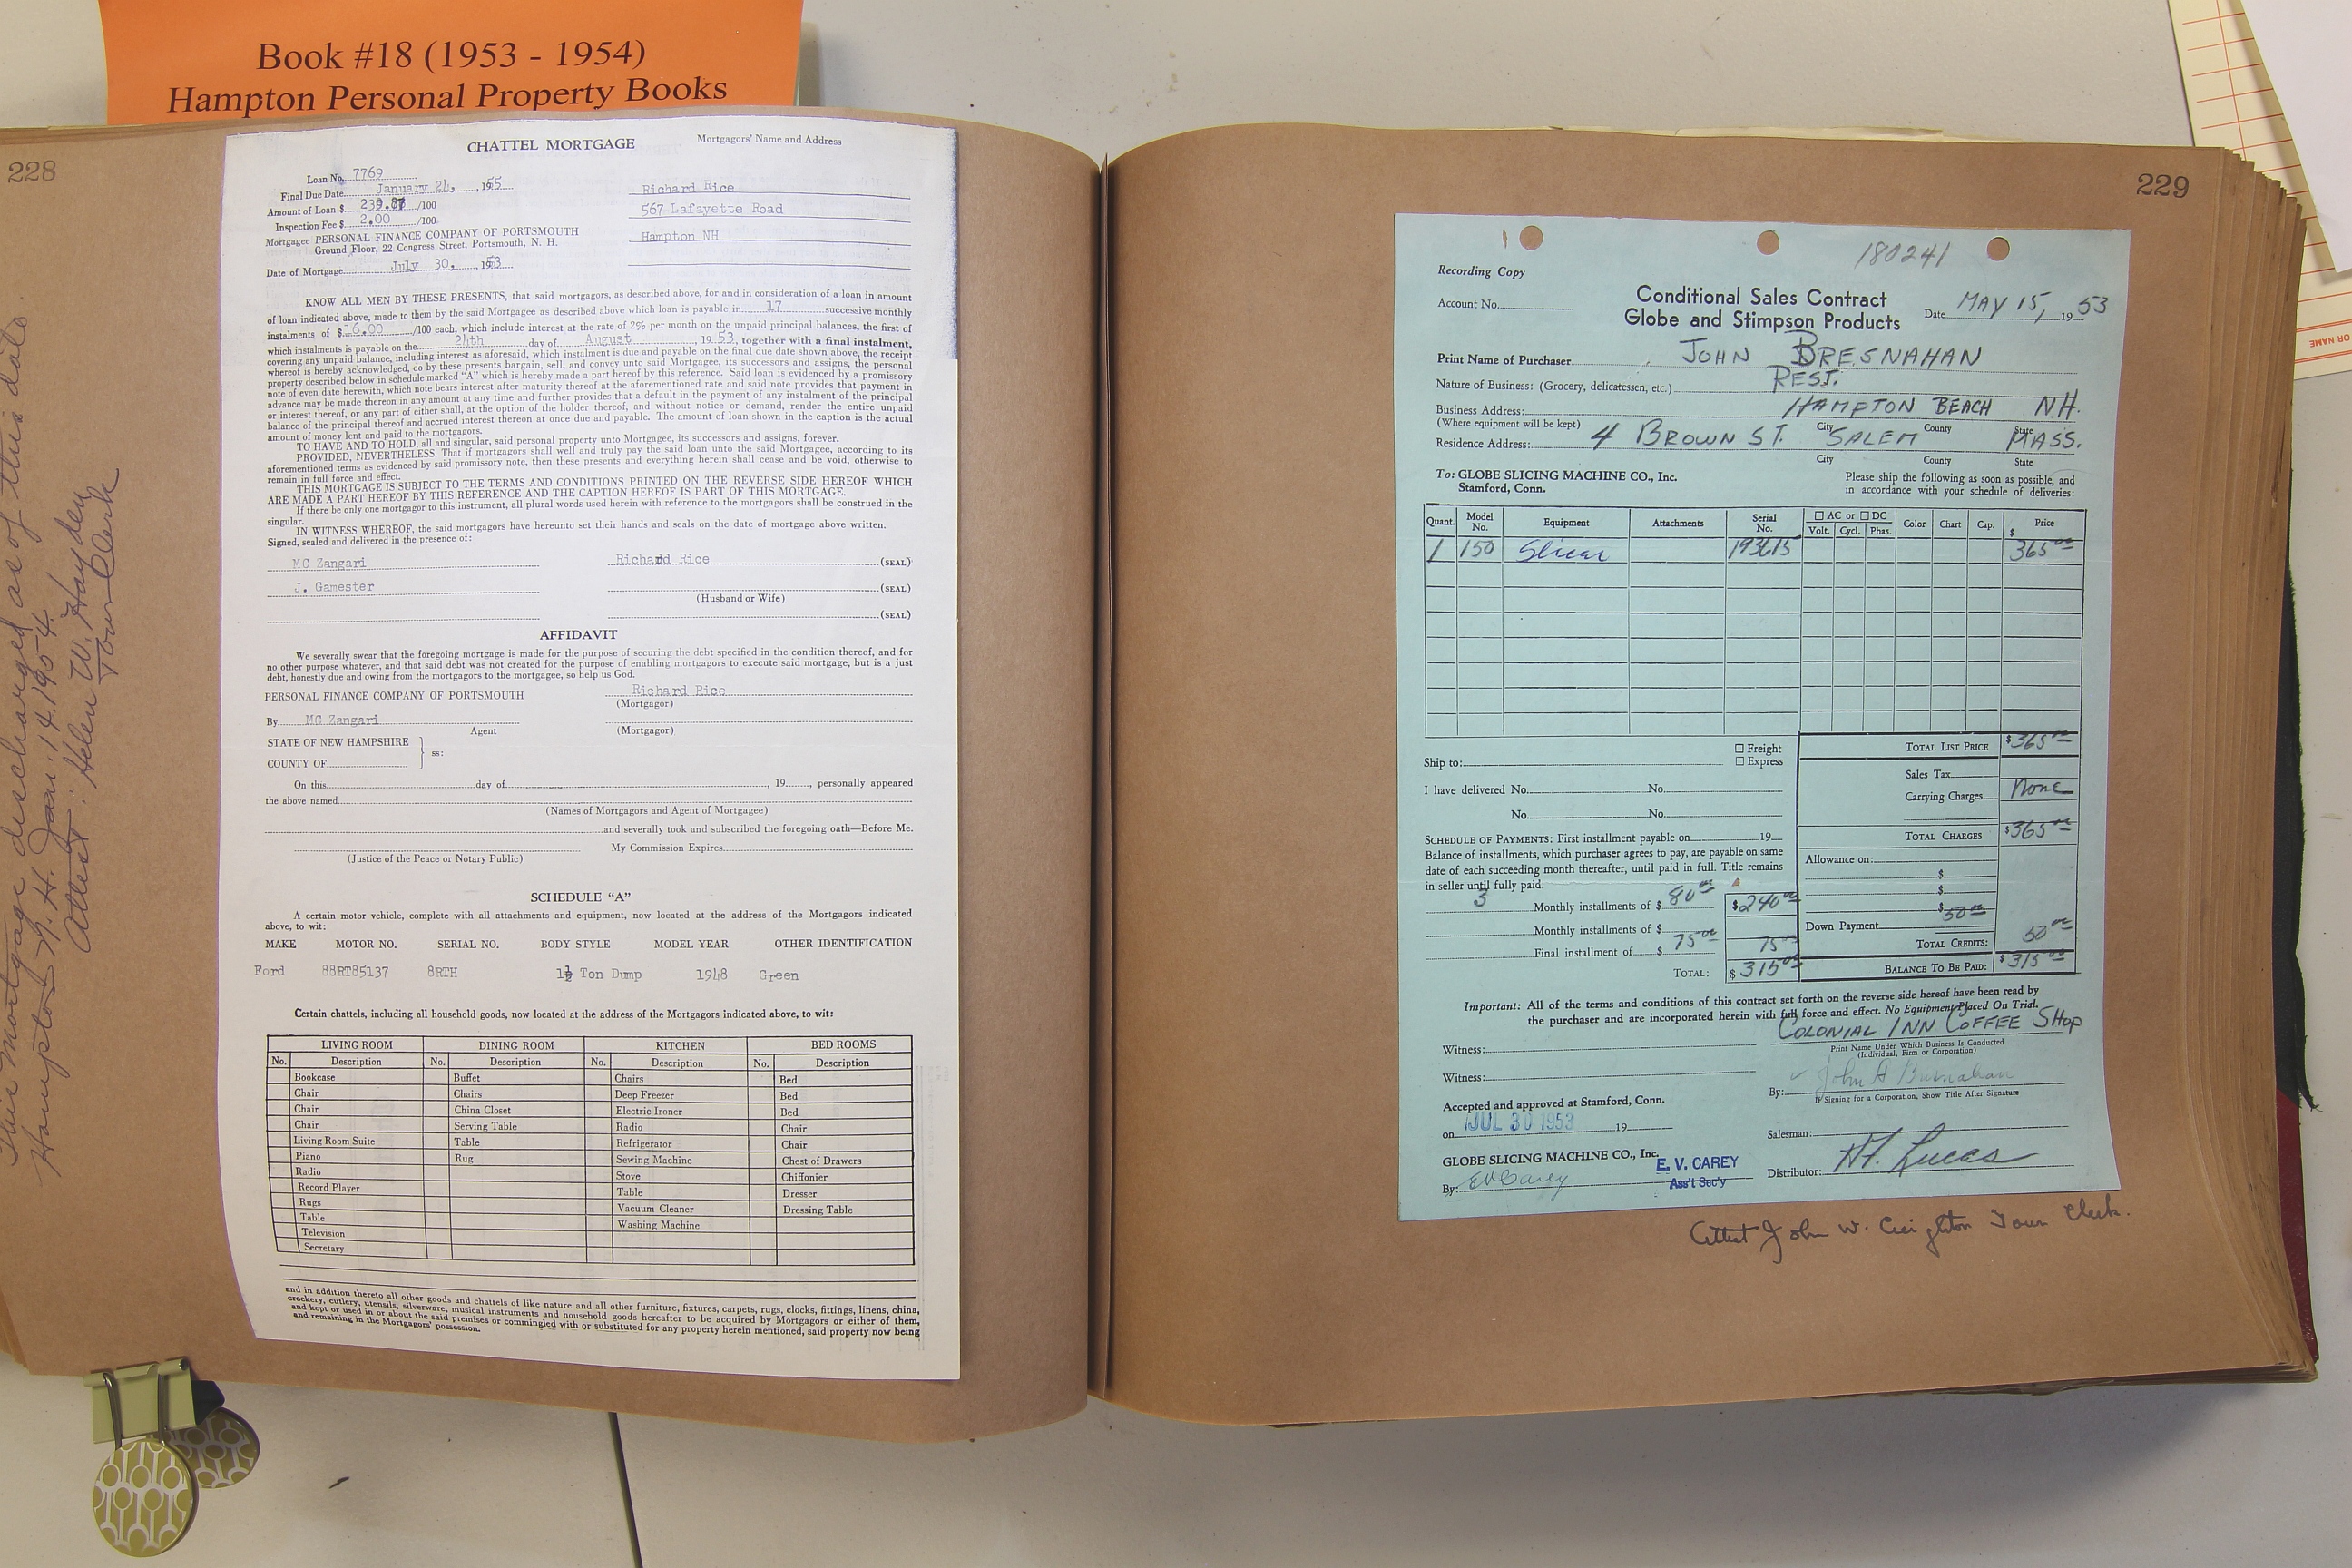 Book #18 (1953 - 1954)
Hampton Personal Property Books
228
This mortgage discharged as of this date.
Hampton N.H. Jan. 14. 1954.
Attest: Helen W. Hayden
Town Clerk
CHATTEL MORTGAGE
Mortgagors' Name and Address
Loan No. 7769
Final Due Date January 24, , 1955
Amount of Loan $ 239.87 /100
Inspection Fee $ 2.00 /100
Mortgagee PERSONAL FINANCE COMPANY OF PORTSMOUTH
Ground Floor, 22 Congress Street, Portsmouth, N. H.
Date of Mortgage July 30, , 1953
Richard Rice
567 Lafayette Road
Hampton NH
KNOW ALL MEN BY THESE PRESENTS, that said mortgagors, as described above, for and in consideration of a loan in amount
of loan indicated above, made to them by the said Mortgagee as described above which loan is payable in 17 successive monthly
instalments of $16.00 /100 each, which include interest at the rate of 2% per month on the unpaid principal balances, the first of
which instalments is payable on the 24th day of August , 19 53, together with a final instalment,
covering any unpaid balance, including interest as aforesaid, which instalment is due and payable on the final due date shown above, the receipt
whereof is hereby acknowledged, do by these presents bargain, sell, and convey unto said Mortgagee, its successors and assigns, the personal
property described below in schedule marked "A" which is hereby made a part hereof by this reference. Said loan is evidenced by a promissory
note of even date herewith, which note bears interest after maturity thereof at the aforementioned rate and said note provides that payment in
advance may be made thereon in any amount at any time and further provides that a default in the payment of any instalment of the principal
or interest thereof, or any part of either shall, at the option of the holder thereof, and without notice or demand, render the entire unpaid
balance of the principal thereof and accrued interest thereon at once due and payable. The amount of loan shown in the caption is the actual
amount of money lent and paid to the mortgagors.
TO HAVE AND TO HOLD, all and singular, said personal property unto Mortgagee, its successors and assigns, forever.
PROVIDED, NEVERTHELESS, That if mortgagors shall well and truly pay the said loan unto the said Mortgagee, according to its
aforementioned terms as evidenced by said promissory note, then these presents and everything herein shall cease and be void, otherwise to
remain in full force and effect.
THIS MORTGAGE IS SUBJECT TO THE TERMS AND CONDITIONS PRINTED ON THE REVERSE SIDE HEREOF WHICH
ARE MADE A PART HEREOF BY THIS REFERENCE AND THE CAPTION HEREOF IS PART OF THIS MORTGAGE.
If there be only one mortgagor to this instrument, all plural words used herein with reference to the mortgagors shall be construed in the
singular.
IN WITNESS WHEREOF, the said mortgagors have hereunto set their hands and seals on the date of mortgage above written.
Signed, sealed and delivered in the presence of:
MC Zangari Richard Rice (SEAL)
J. Gamester (SEAL)
(Husband or Wife)
(SEAL)
AFFIDAVIT
We severally swear that the foregoing mortgage is made for the purpose of securing the debt specified in the condition thereof, and for
no other purpose whatever, and that said debt was not created for the purpose of enabling mortgagors to execute said mortgage, but is a just
debt, honestly due and owing from the mortgagors to the mortgagee, so help us God.
PERSONAL FINANCE COMPANY OF PORTSMOUTH Richard Rice
(Mortgagor)
By MC Zangari
Agent (Mortgagor)
STATE OF NEW HAMPSHIRE
ss:
COUNTY OF
On this day of , 19 , personally appeared
the above named
(Names of Mortgagors and Agent of Mortgagee)
and severally took and subscribed the foregoing oath—Before Me.
My Commission Expires
(Justice of the Peace or Notary Public)
SCHEDULE "A"
A certain motor vehicle, complete with all attachments and equipment, now located at the address of the Mortgagors indicated
above, to wit:
MAKE MOTOR NO. SERIAL NO. BODY STYLE MODEL YEAR OTHER IDENTIFICATION
Ford 88RT85137 8RTH 1½ Ton Dump 1948 Green
Certain chattels, including all household goods, now located at the address of the Mortgagors indicated above, to wit:
LIVING ROOM DINING ROOM KITCHEN BED ROOMS
No. Description No. Description No. Description No. Description
Bookcase Buffet Chairs Bed
Chair Chairs Deep Freezer Bed
Chair China Closet Electric Ironer Bed
Chair Serving Table Radio Chair
Living Room Suite Table Refrigerator Chair
Piano Rug Sewing Machine Chest of Drawers
Radio Stove Chiffonier
Record Player Table Dresser
Rugs Vacuum Cleaner Dressing Table
Table Washing Machine
Television
Secretary
and in addition thereto all other goods and chattels of like nature and all other furniture, fixtures, carpets, rugs, clocks, fittings, linens, china,
crockery, cutlery, utensils, silverware, musical instruments and household goods hereafter to be acquired by Mortgagors or either of them,
and kept or used in or about the said premises or commingled with or substituted for any property herein mentioned, said property now being
and remaining in the Mortgagors' possession.
229
180241
Recording Copy
Account No.
Conditional Sales Contract
Globe and Stimpson Products
Date MAY 15, 1953
Print Name of Purchaser JOHN BRESNAHAN
Nature of Business: (Grocery, delicatessen, etc.) REST.
Business Address: HAMPTON BEACH N.H.
(Where equipment will be kept) City County State
Residence Address: 4 BROWN ST. SALEM MASS.
City County State
To: GLOBE SLICING MACHINE CO., Inc.
Stamford, Conn.
Please ship the following as soon as possible, and
in accordance with your schedule of deliveries:
Quant. Model No. Equipment Attachments Serial No. AC or DC Volt. Cycl. Phas. Color Chart Cap. Price $
1 150 Slicer 193615 365 00
Ship to: Freight
Express
I have delivered No. No.
No. No.
SCHEDULE OF PAYMENTS: First installment payable on 19
Balance of installments, which purchaser agrees to pay, are payable on same
date of each succeeding month thereafter, until paid in full. Title remains
in seller until fully paid.
3 Monthly installments of $ 80 00 $240 00
Monthly installments of $
Final installment of $ 75 00 75 00
TOTAL: $ 315 00
TOTAL LIST PRICE $365 00
Sales Tax
Carrying Charges None
TOTAL CHARGES $365 00
Allowance on:
$
$
$ 50 00
Down Payment
TOTAL CREDITS: 50 00
BALANCE TO BE PAID: $315 00
Important: All of the terms and conditions of this contract set forth on the reverse side hereof have been read by
the purchaser and are incorporated herein with full force and effect. No Equipment Placed On Trial.
COLONIAL INN COFFEE SHOP
Witness:
Print Name Under Which Business Is Conducted
(Individual, Firm or Corporation)
Witness:
By: John A Bresnahan
If Signing for a Corporation, Show Title After Signature
Accepted and approved at Stamford, Conn.
on JUL 30 1953 19
Salesman:
GLOBE SLICING MACHINE CO., Inc.
E. V. CAREY
Ass't Sec'y
By: EV Carey
Distributor: H.F. Lucas
Attest John W. Creighton Town Clerk.
OR NAME